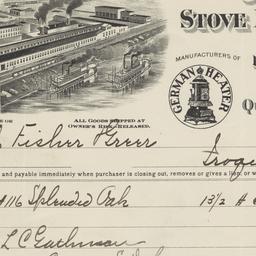 STOVE
MANUFACTURERS OF
GERMAN HEATER
ALL GOODS SHIPPED AT
OWNER'S RISK—RELEASED.
Qu
Fisher Greer
and payable immediately when purchaser is closing out, removes or gives a lien, or w
#116 Splendid Oak 13½ #
L C Guthman